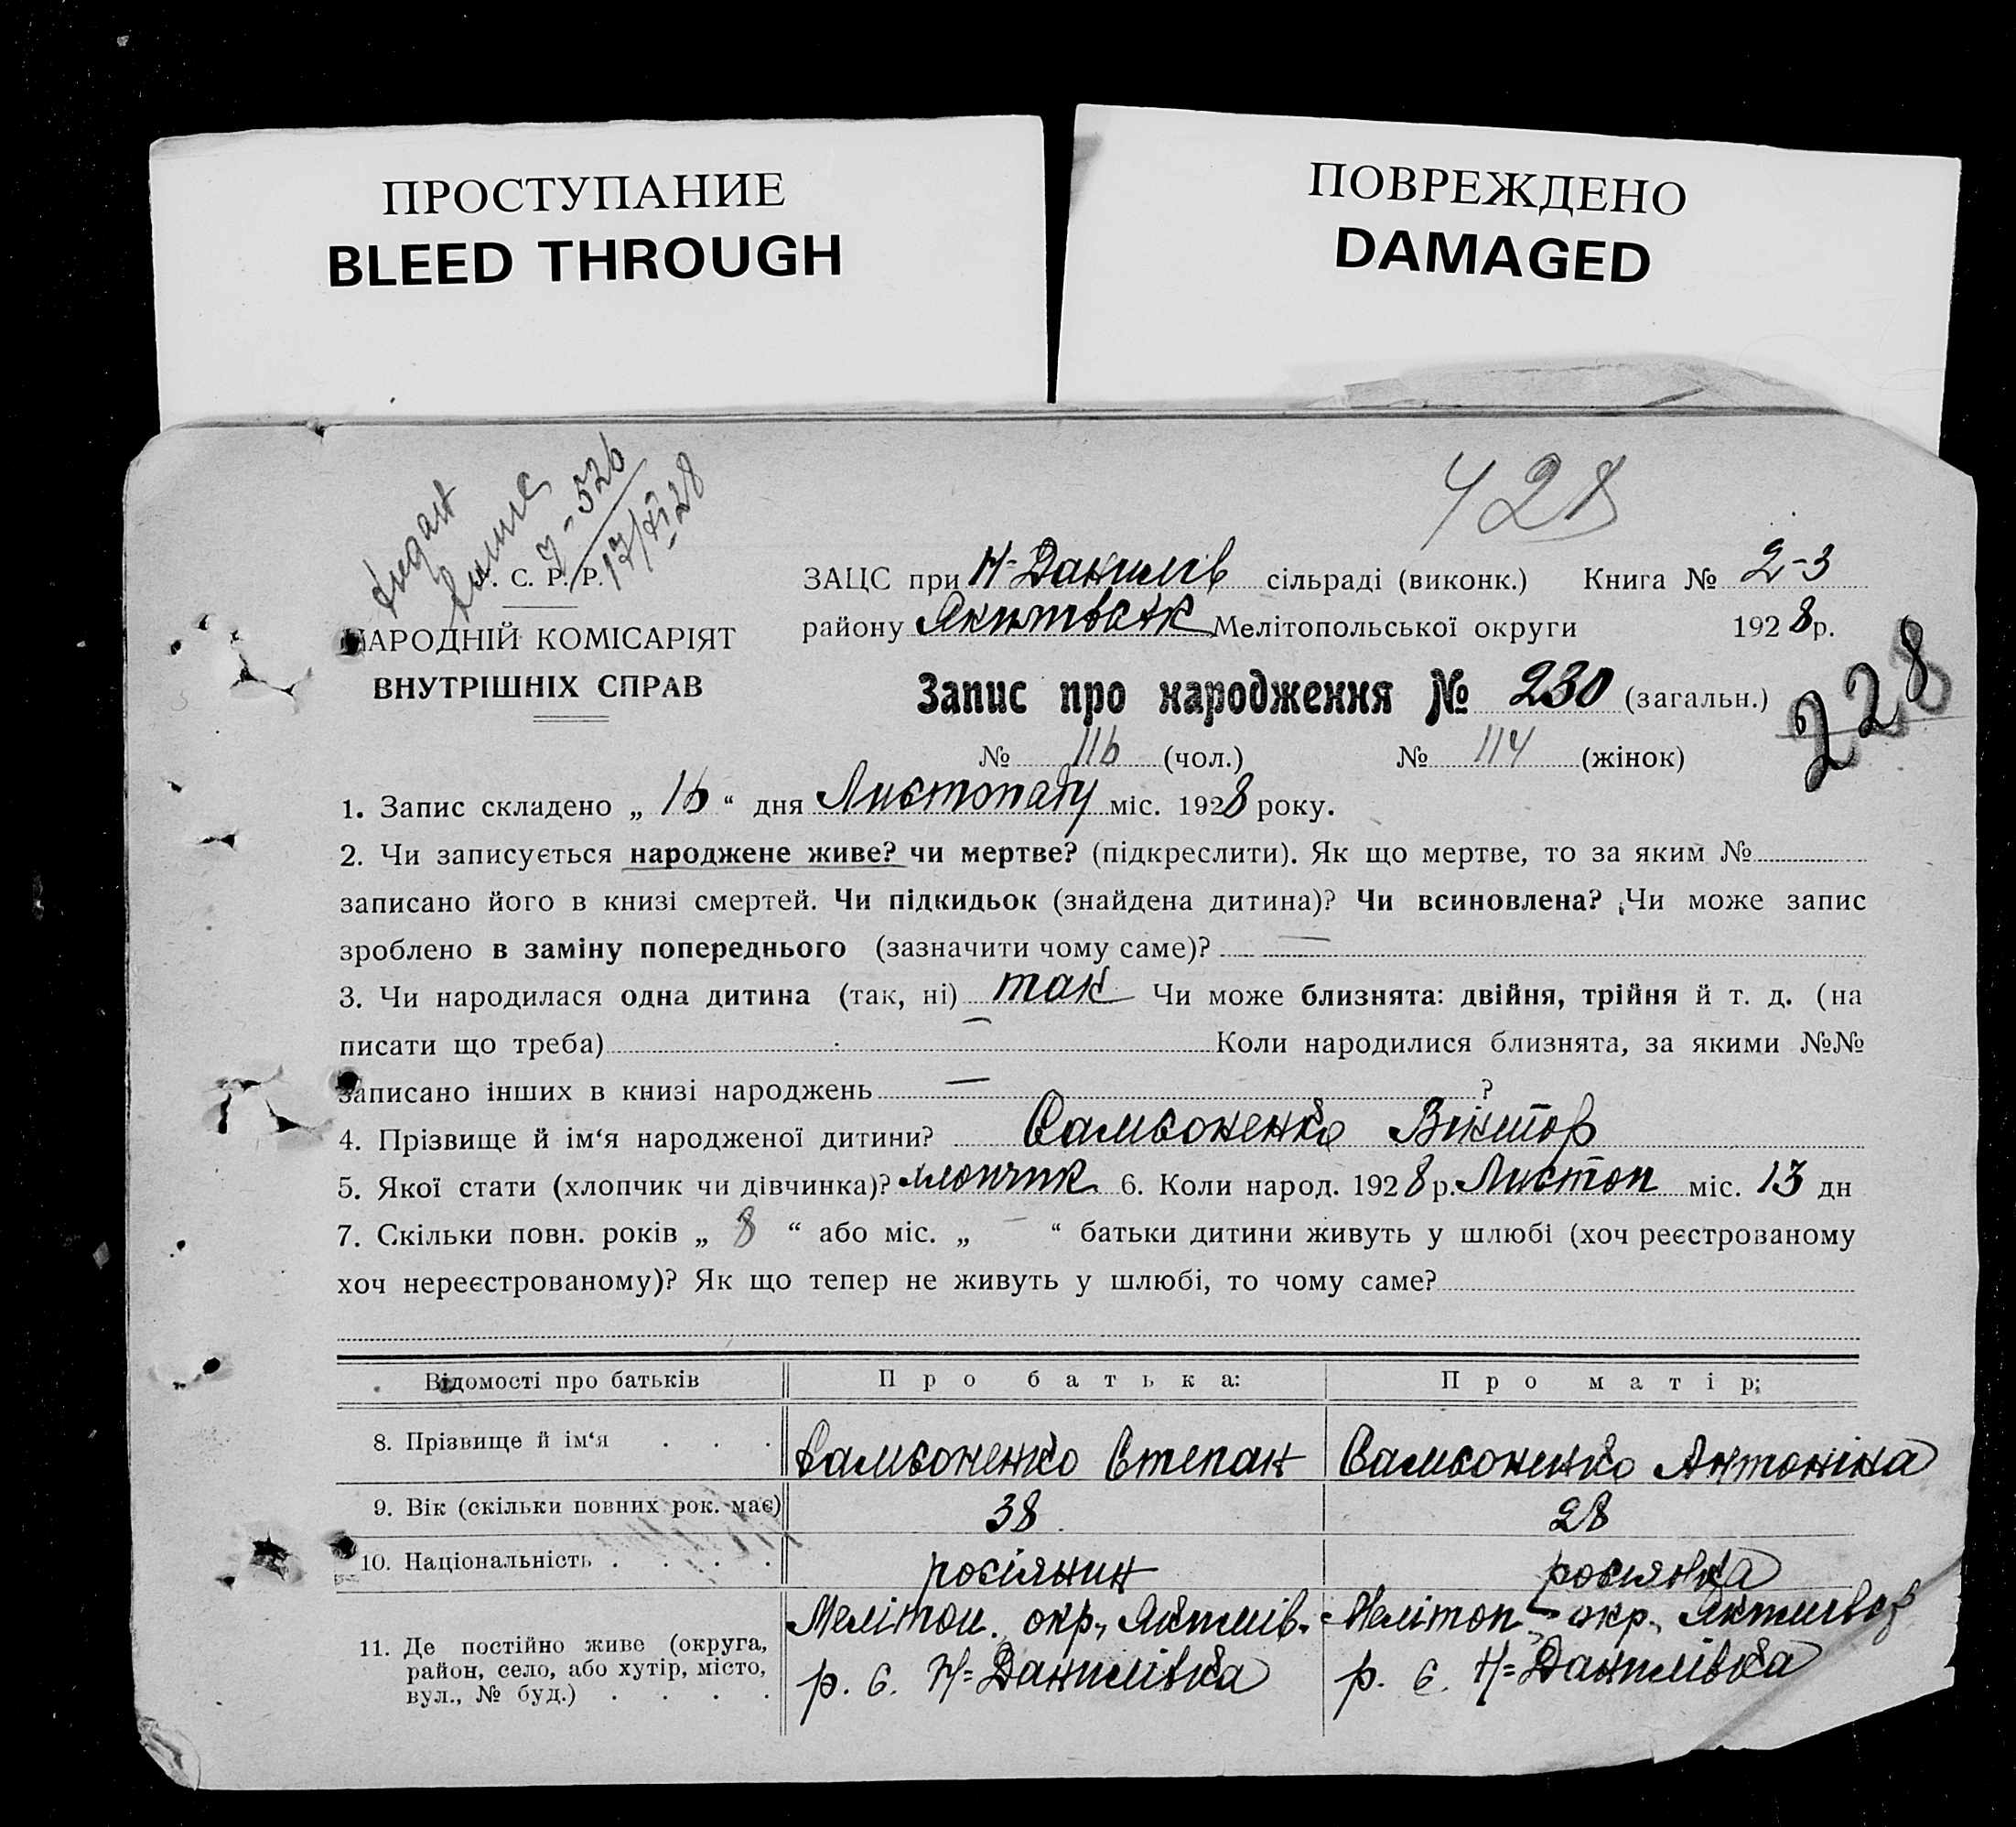 ПРОСТУПАНИЕ
BLEED THROUGH
ПОВРЕЖДЕНО
DAMAGED
428
7-526
17/XI 28
. С. Р. Р.
НАРОДНІЙ КОМІСАРІЯТ
ВНУТРІШНІХ СПРАВ
ЗАЦС при Н-Данилів сільраді (виконк.) Книга № 2-3
району Мелітопольської округи 1928 р.
Запис про народження № 230 (загальн.)
228
№ 116 (чол.) № 114 (жінок)
1. Запис складено „ 16 “ дня Листопаду міс. 1928 року.
2. Чи записується народжене живе? чи мертве? (підкреслити). Як що мертве, то за яким №
записано його в книзі смертей. Чи підкидьок (знайдена дитина)? Чи всиновлена? Чи може запис
зроблено в заміну попереднього (зазначити чому саме)? —
3. Чи народилася одна дитина (так, ні) так Чи може близнята: двійня, трійня й т. д. (на
писати що треба) — Коли народилися близнята, за якими №№
записано інших в книзі народжень — ?
4. Прізвище й ім‘я народженої дитини? Самсоненко Віктор
5. Якої стати (хлопчик чи дівчинка)? хлопчик 6. Коли народ. 1928 р. Листоп міс. 13 дн
7. Скільки повн. років „ 8 “ або міс. „ — “ батьки дитини живуть у шлюбі (хоч реєстрованому
хоч нереєстрованому)? Як що тепер не живуть у шлюбі, то чому саме?
Відомості про батьків Про батька: Про матір:
8. Прізвище й ім‘я . . . Самсоненко Степан Самсоненко Антоніна
9. Вік (скільки повних рок. має) 38 28
10. Національність . . . . росіянин росиянка
11. Де постійно живе (округа, район, село, або хутір, місто, вул., № буд.) . . . .
Мелітоп. окр., Якимів. р. с. Н=Данилівка
Мелітоп окр., р. с. Н=Данилівка